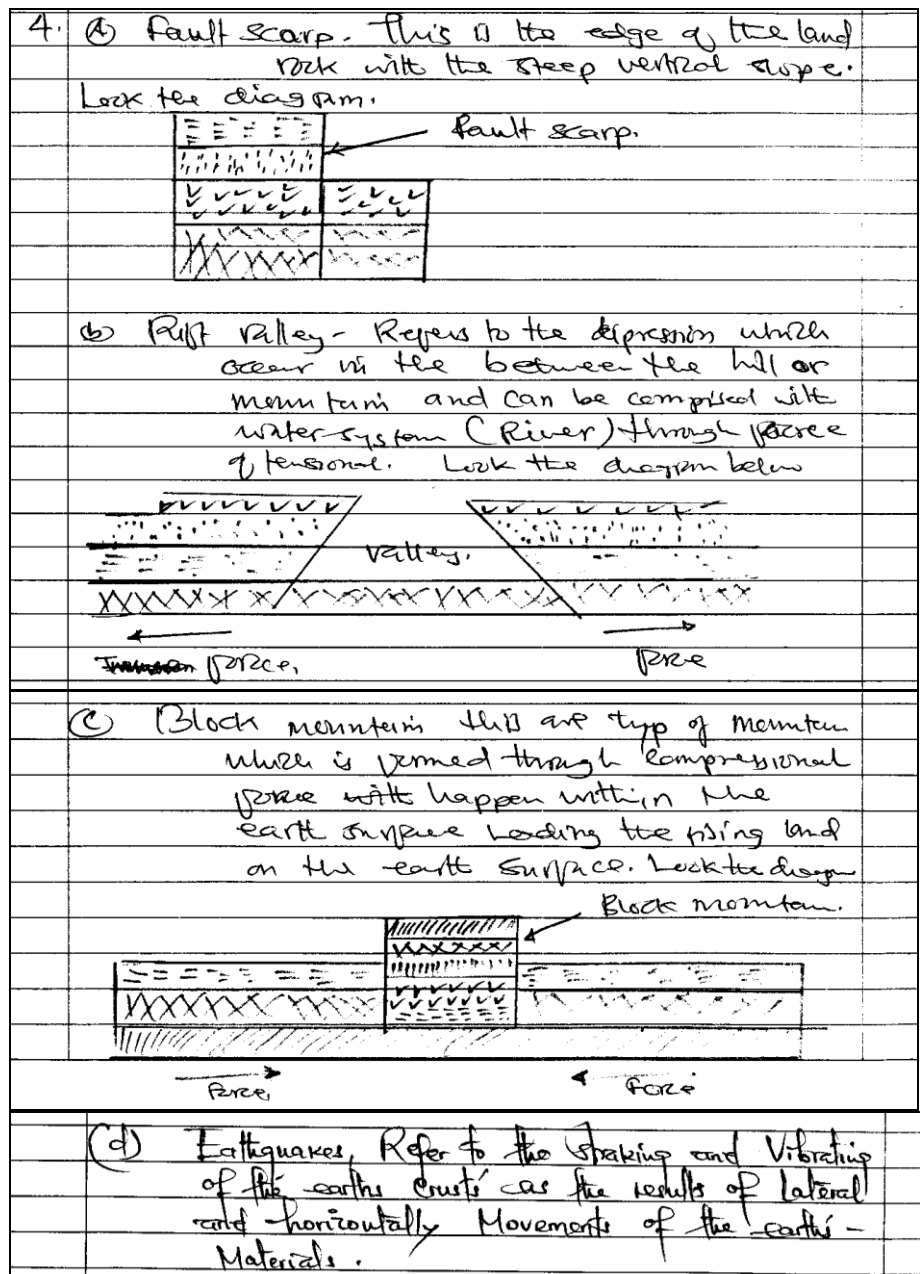 4. (a) Fault scarp. This is the edge of the land
rock with the steep vertical slope.
Look the diagram.
Fault scarp.
(b) Rift valley - Refers to the depression which
occur in the between the hill or
mountain and can be comprised with
water system (River) through force
of tensional. Look the diagram below
valley.
force, force
(c) Block mountain this are typ of mountain
which is formed through compressional
force with happen within the
earth surface leading the rising land
on the earth surface. Look the diagram
Block mountain.
Force, Force
(d) Eathquakes, Refer to the shaking and Vibrating
of the earths crust as the results of Lateral
and horizontally Movements of the earths -
Materials.